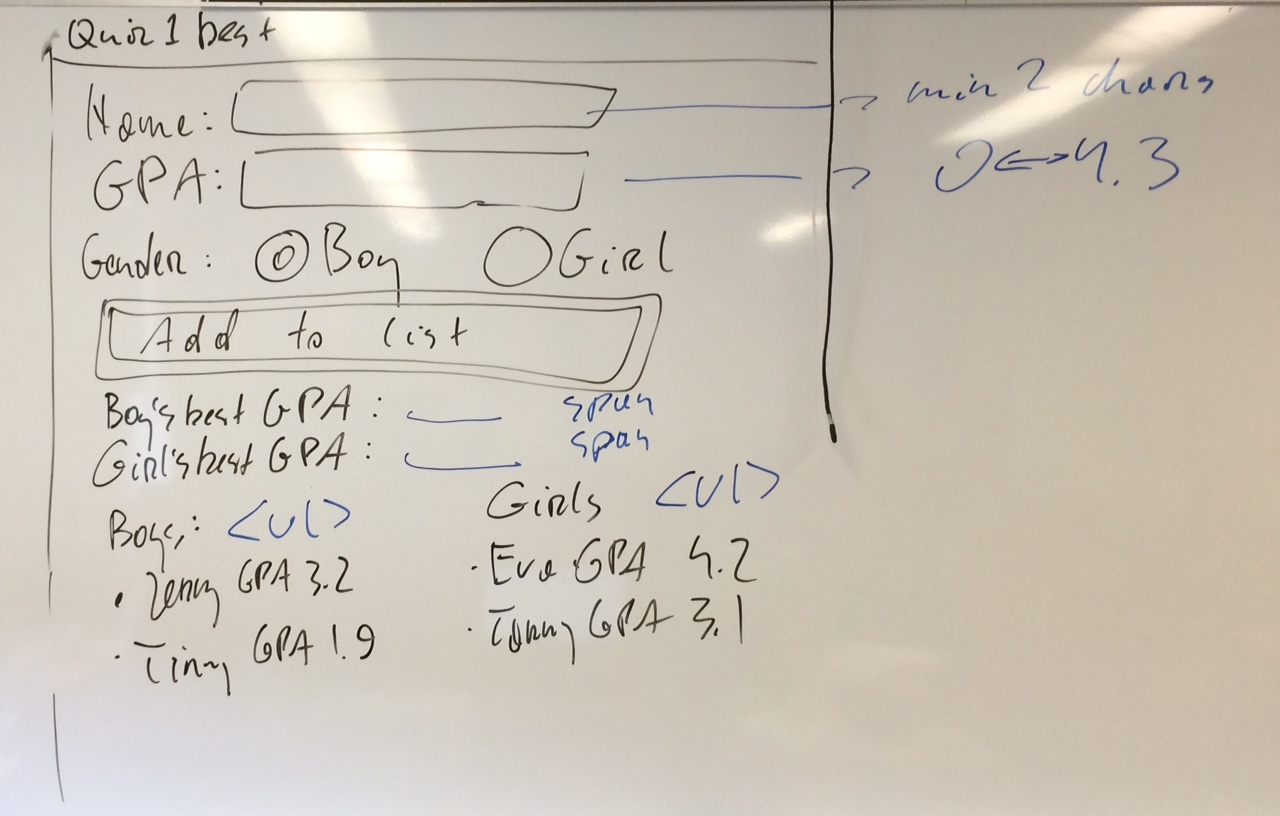 Quiz 1 best
Name: → min 2 chars
GPA: → 0↔4.3
Gender: Boy Girl
Add to list
Boy's best GPA: span
Girl's best GPA: span
Boys: <ul>
• GPA 3.2
• Timmy GPA 1.9
Girls <ul>
• Eva GPA 4.2
• GPA 3.1